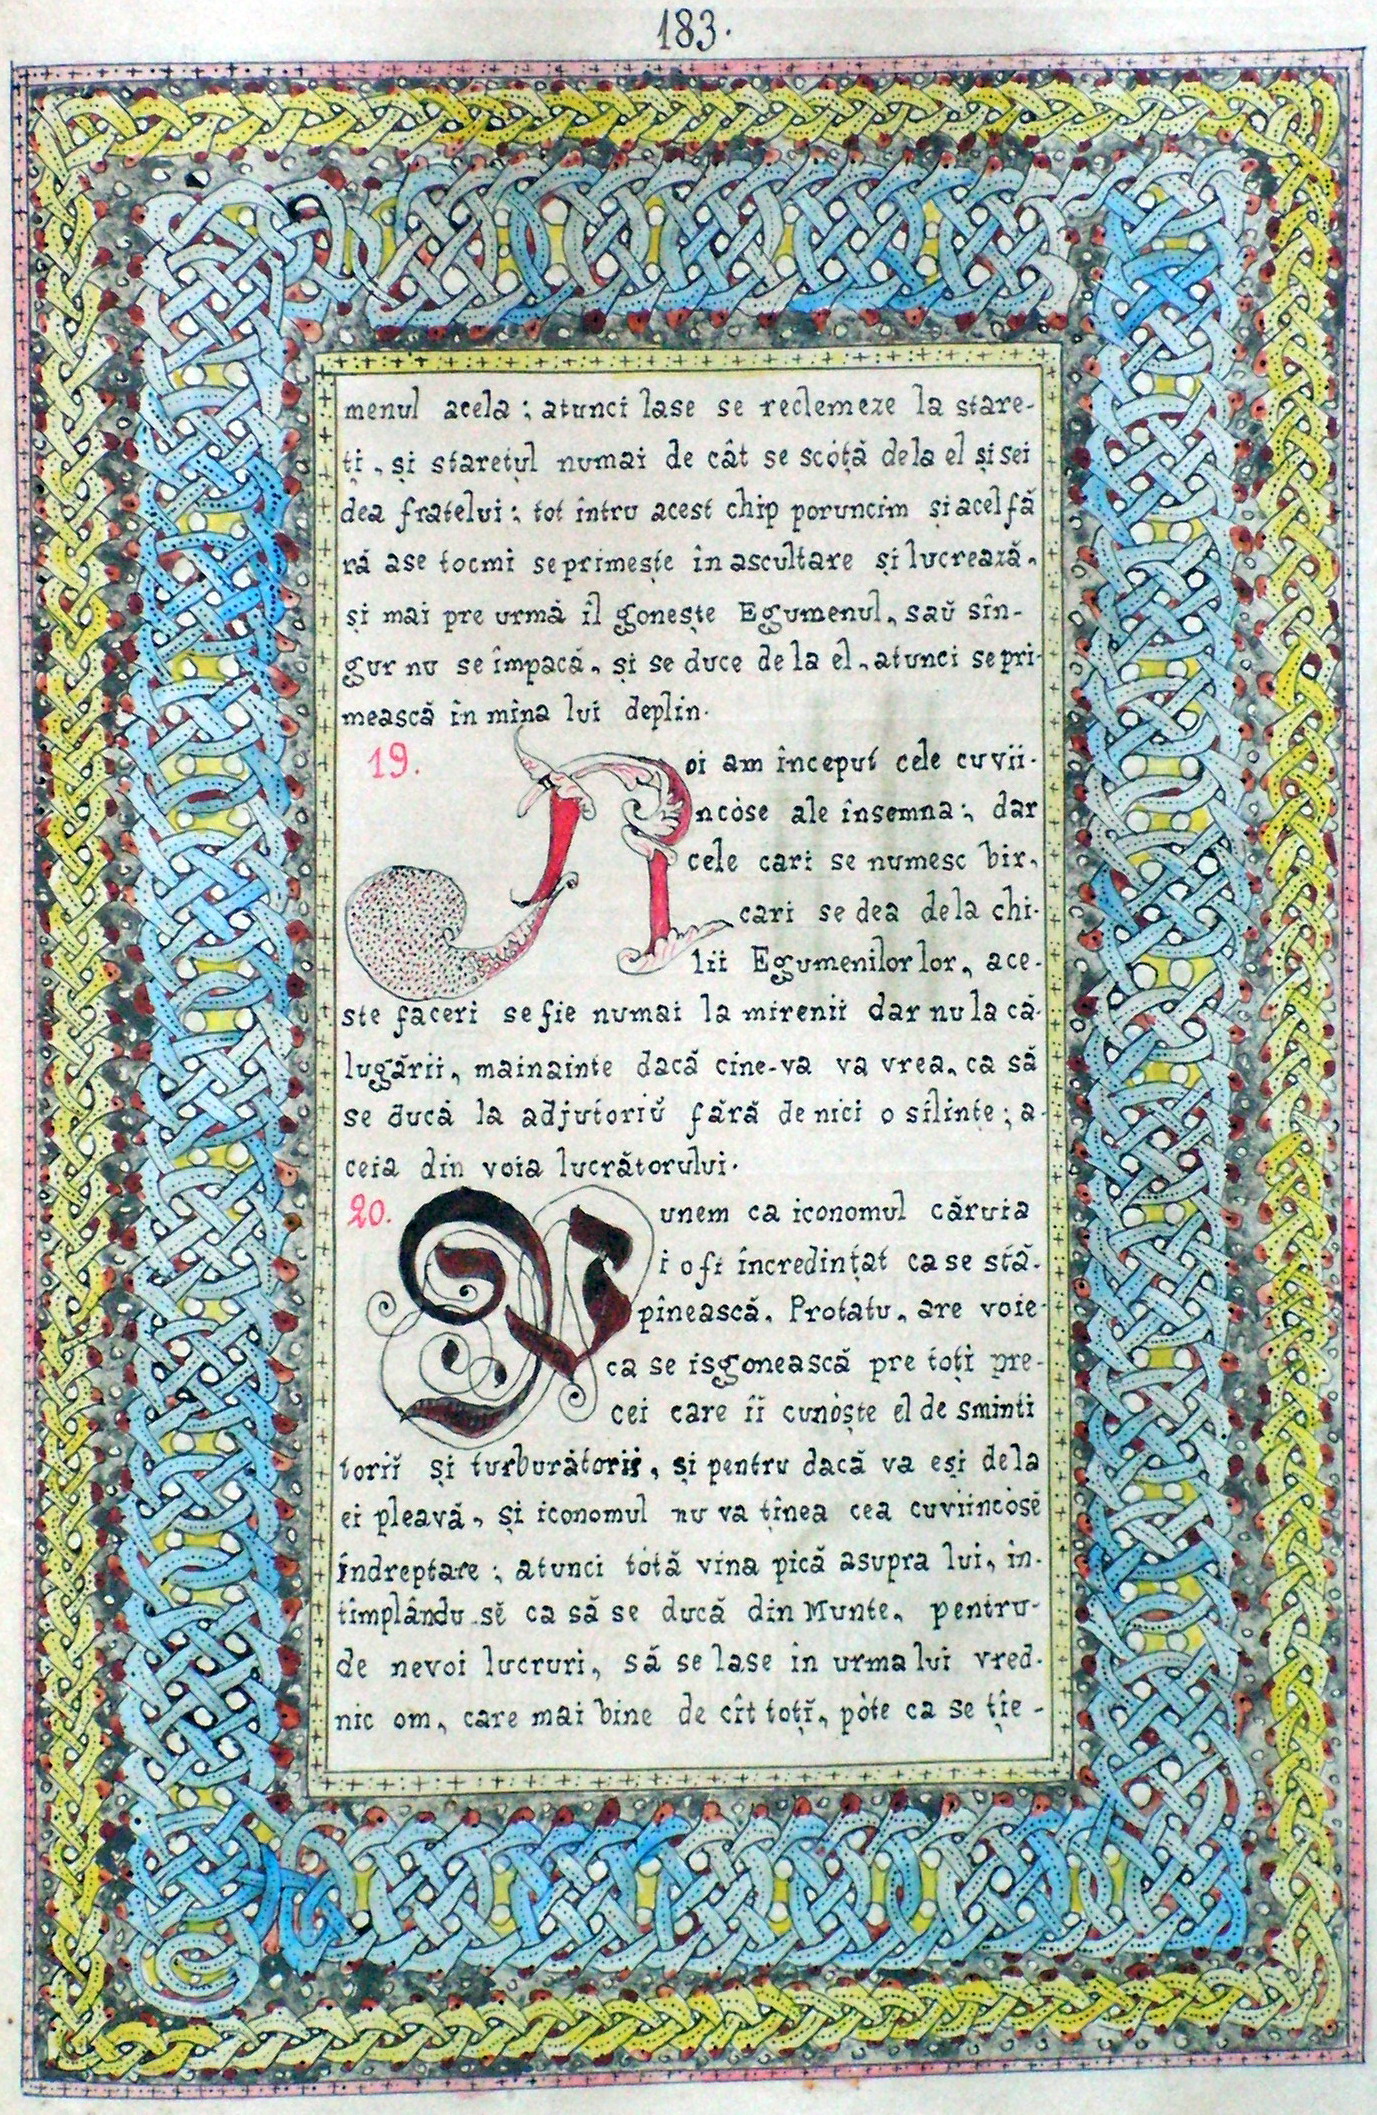 183.
menul acela ; atunci lase se reclemeze la stare-
ți, și starețul numai de cât se scóță dela el și sei
dea fratelui ; tot întru acest chip poruncim și acel fă
ră ase tocmi seprimește în ascultare și lucrează,
și mai pre urmă îl gonește Egumenul, saŭ sîn-
gur nu se împacă, și se duce de la el, atunci sepri-
mească în mîna lui deplin.
19. Noi am început cele cuvii-
ncóse ale însemna ; dar
cele cari se numesc bir,
cari se dea dela chi-
lii Egumenilor lor, ace-
ste faceri se fie numai la mirenii dar nu la că-
lugării, mainainte dacă cine-va va vrea, ca să
se ducă la adjutoriŭ fără de nici o silinte ; a-
ceia din voia lucrătorului.
20. Punem ca iconomul căruia
i o fi încredințat ca se stă-
pînească, Protatu, are voie
ca se isgonească pre toți pre-
cei care îi cunóște el de sminti
torii și turburătorii, și pentru dacă va eși dela
ei pleavă, și iconomul nu va ținea cea cuviincósĕ
îndreptare ; atunci tótă vina pică asupra lui, în-
tîmplându-sĕ ca să se ducă din Munte, pentru-
de nevoi lucruri, să se lase în urma lui vred-
nic om, care mai bine de cît toți, póte ca se ție-